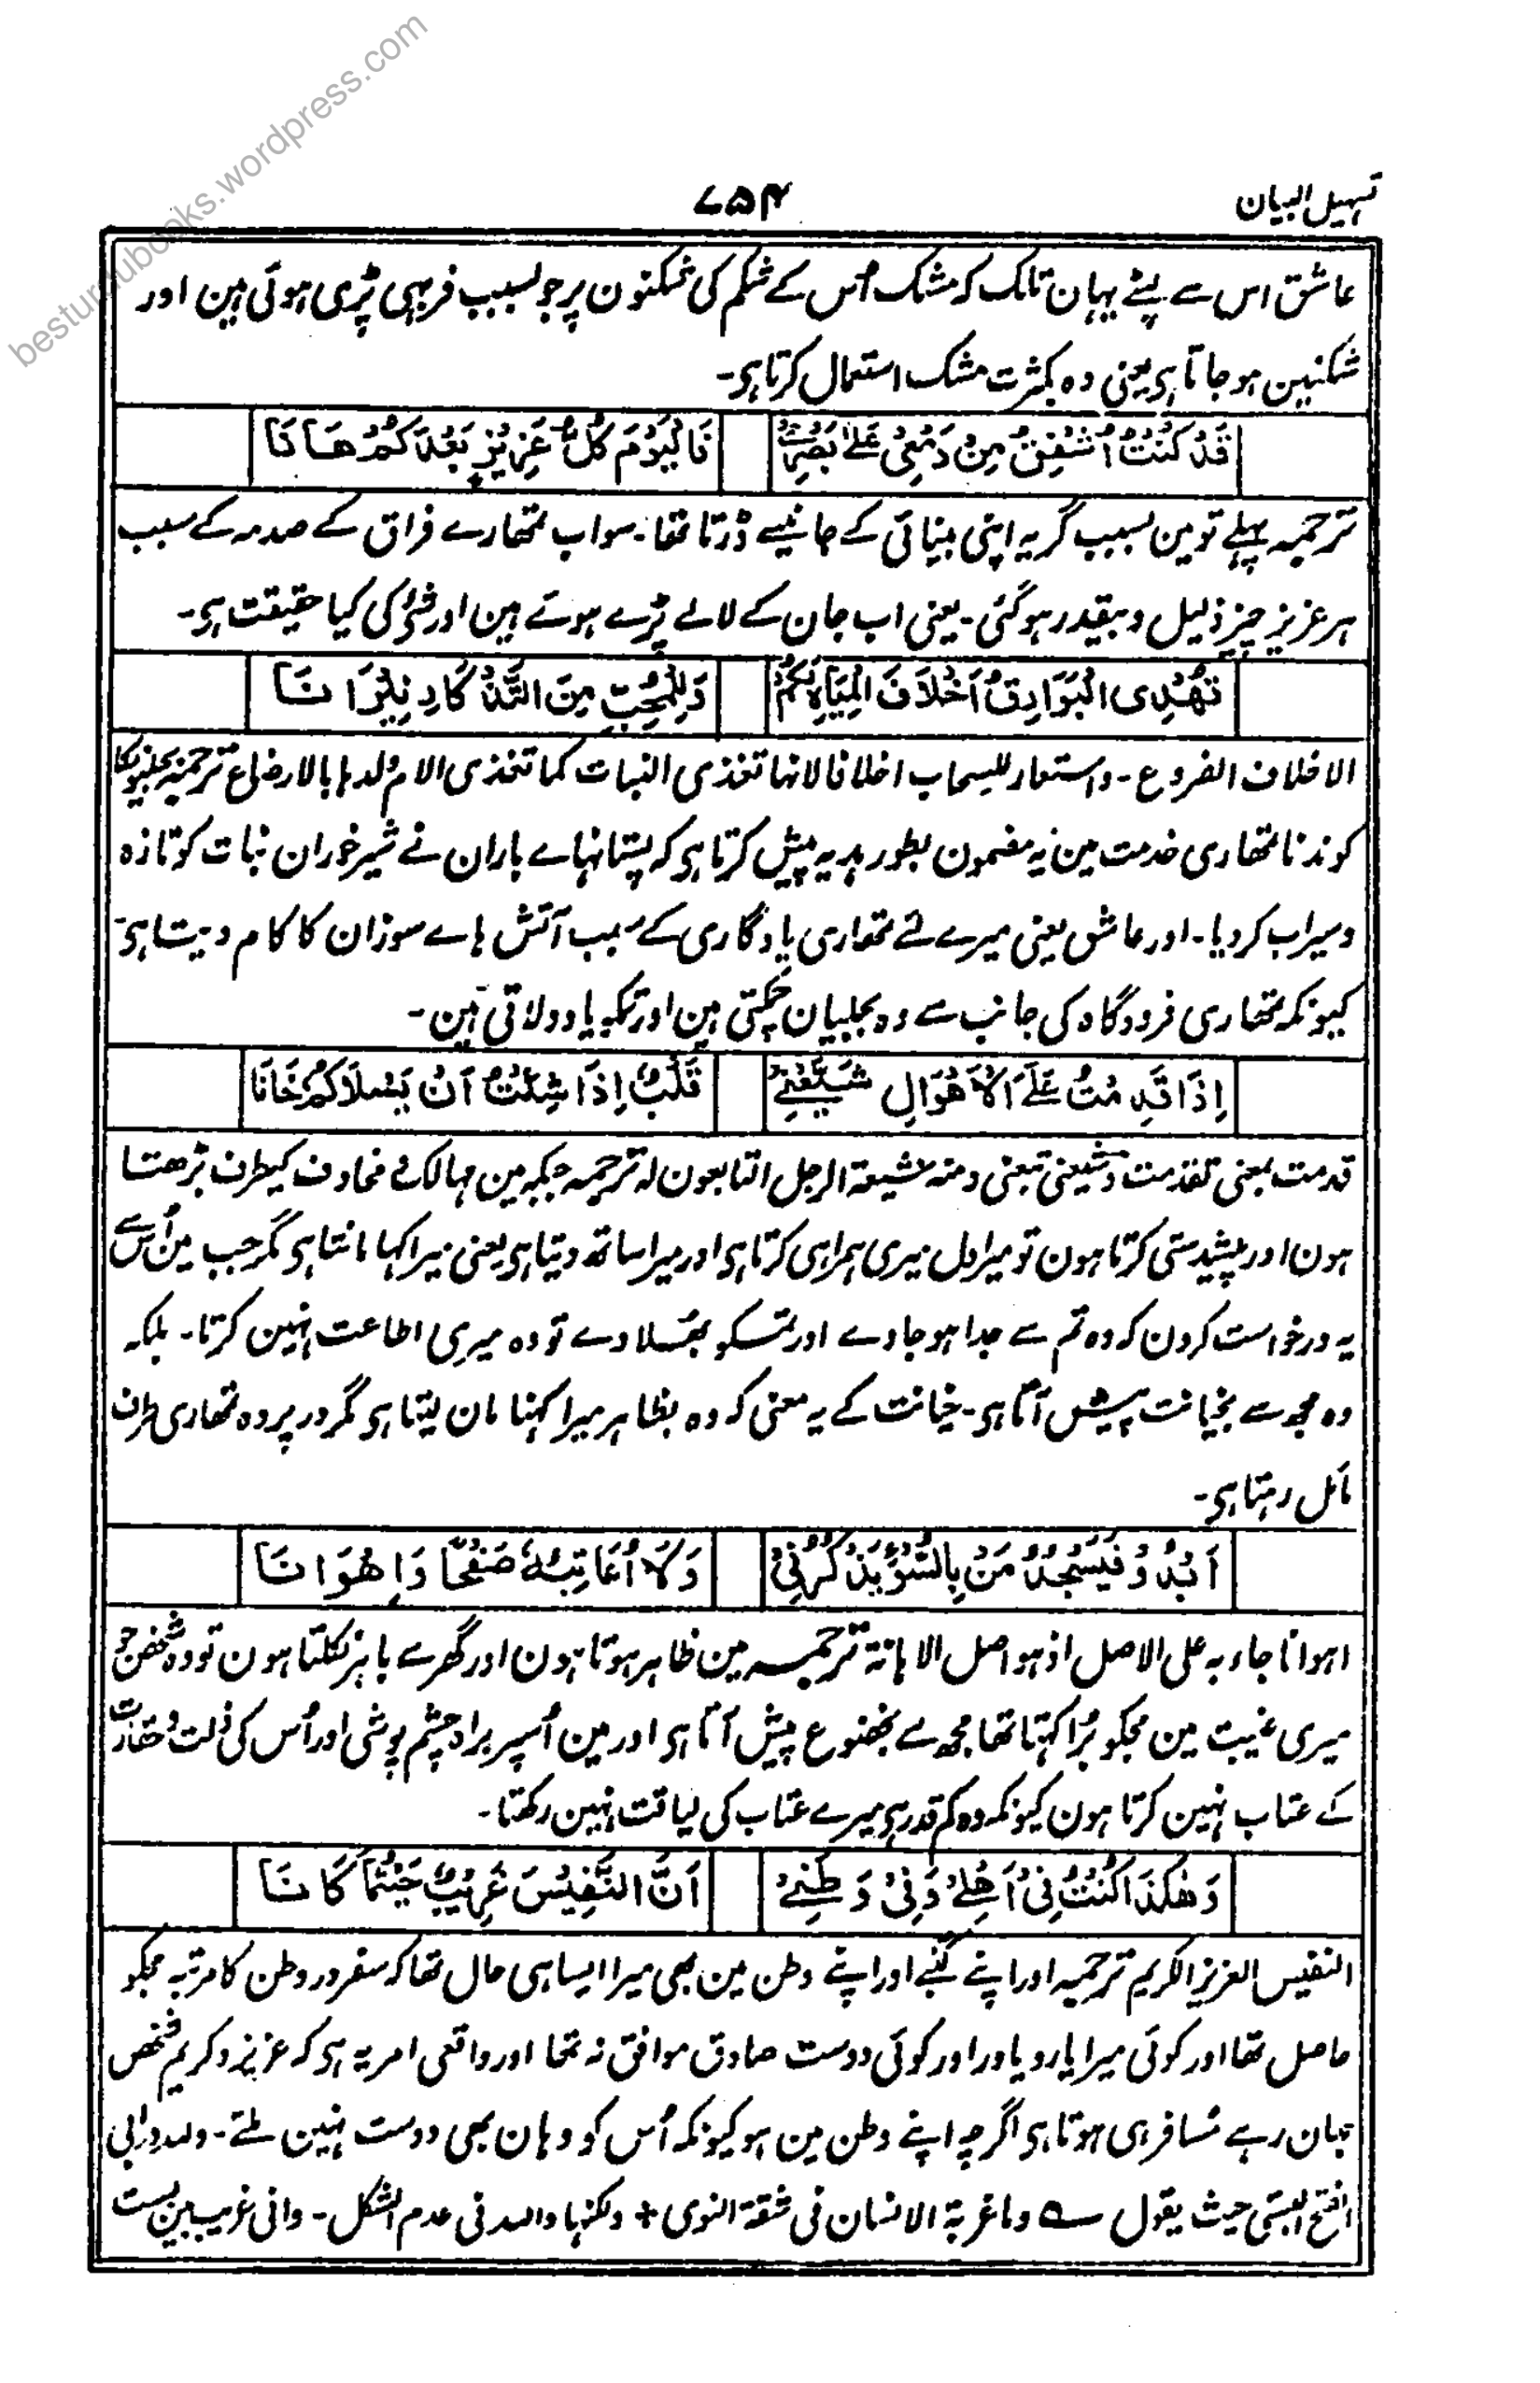 besturdubooks.wordpress.com
تسہیل البیان
۷۵۴
عاشق اس سے لپٹے یہان تالک کہ مشک اُس کے شکم کی شکنون پر جو لبسبب فربہی پڑی ہوئی ہین اور
شکنین ہو جاتا ہی یعنی وہ بکثرت مشک استعمال کرتا ہی۔
قَدْ كُنْتُ اُشْفِقُ مِنْ دَمْعِیْ عَلٰے بَصَرِیْ فَالْیَوْمَ كُلُّ عَزِیْزٍ بَعْدَ كُمْ هَانَا
ترجمہ پہلے تو مین بسبب گریہ اپنی بینائی کے جانیسے ڈرتا تھا۔ سو اب تمھارے فراق کے صدمہ کے سبب
ہر عزیز چیز ذلیل و بیقدر ہو گئی۔ یعنی اب جان کے لالے پڑے ہوئے ہین اور شئ کی کیا حقیقت ہی۔
تُهْدِی الْبَوَارِقُ اَخْلَافَ الْمِیَاهِ لَكُمْ وَلِلْمُحِبِّ مِنَ التَّذْكَارِ نِیْرَانَا
الاخلاف الضروع۔ واستعار للسحاب اخلافا لانہا تغذی النبات کما تغذی الام ولدہا بالارضاع ترجمہ بجلیونکا
کوندنا تمھاری خدمت مین یہ مضمون بطور ہدیہ پیش کرتا ہی کہ پستانہاے باران نے شیرخوران نبات کو تازہ
و سیراب کر دیا۔ اور عاشق یعنی میرے لئے تمھاری یادگاری کے سبب آتش ہاے سوزان کا کام دیتا ہی۔
کیونکہ تمھاری فرودگاہ کی جانب سے وہ بجلیان چمکتی ہین اور تمکو یاد دلاتی ہین۔
اِذَا قَدِمْتُ عَلَے الْاَهْوَالِ شَیَّعَنِیْ قَلْبٌ اِذَا شِئْتُ اَنْ یَسْلَاكُمْ خَانَا
قدمت بمعنی تقدمت و شیعنی تبعنی ومنہ شیعۃ الرجل التابعون لہ ترجمہ جبکہ مین مہالک و مخاوف کیطرف بڑھتا
ہون اور پیشدستی کرتا ہون تو میرا دل میری ہمراہی کرتا ہی اور میرا ساتھ دیتا ہی یعنی میرا کہا مانتا ہی مگر جب مین اُس سے
یہ درخواست کرون کہ وہ تم سے جدا ہو جاوے اور تمکو بھلا دے تو وہ میری اطاعت نہین کرتا۔ بلکہ
وہ مجھ سے بخیانت پیش آتا ہی۔ خیانت کے یہ معنی کہ وہ بظاہر میرا کہنا مان لیتا ہی مگر در پردہ تمھاری طرف
مائل رہتا ہی۔
اَبْدُوْ فَیَسْجُدُ مَنْ بِالسُّوْءِ یَذْكُرُنِیْ وَلَا اُعَاتِبُهٗ صَفْحًا وَ اِهْوَانَا
اہوانا جاء بہ علی الاصل اذ ہو اصل الاہانۃ ترجمہ مین ظاہر ہوتا ہون اور گھر سے باہر نکلتا ہون تو وہ شخص جو
میری غیبت مین مجکو بُرا کہتا تھا مجھ سے بخضوع پیش آتا ہی اور مین اُسپر براہ چشم پوشی اور اُس کی ذلت و حقارت
کے عتاب نہین کرتا ہون کیونکہ وہ کم قدر ہی میرے عتاب کی لیاقت نہین رکھتا۔
وَ هٰكَذَا كُنْتُ فِیْ اَهْلِیْ وَفِیْ وَطَنِیْ اَنَّ النَّفِیْسَ غَرِیْبٌ حَیْثُمَا كَانَا
النفیس العزیز الکریم ترجمہ اور اپنے کنبے اور اپنے وطن مین بھی میرا ایسا ہی حال تھا کہ سفر در وطن کا مرتبہ مجکو
حاصل تھا اور کوئی میرا یار و یاور اور کوئی دوست صادق موافق نہ تھا اور واقعی امر یہ ہی کہ عزیز و کریم شخص
جہان رہے مسافر ہی ہوتا ہی اگرچہ اپنے وطن مین ہو کیونکہ اُس کو وہان بھی دوست نہین ملتے۔ وللہ در ابی
الفتح البستی حیث یقول ؎ وما غربۃ الانسان فی شقۃ النوی + ولکنہا واللہ فی عدم الشکل۔ وانی غریب بین بست